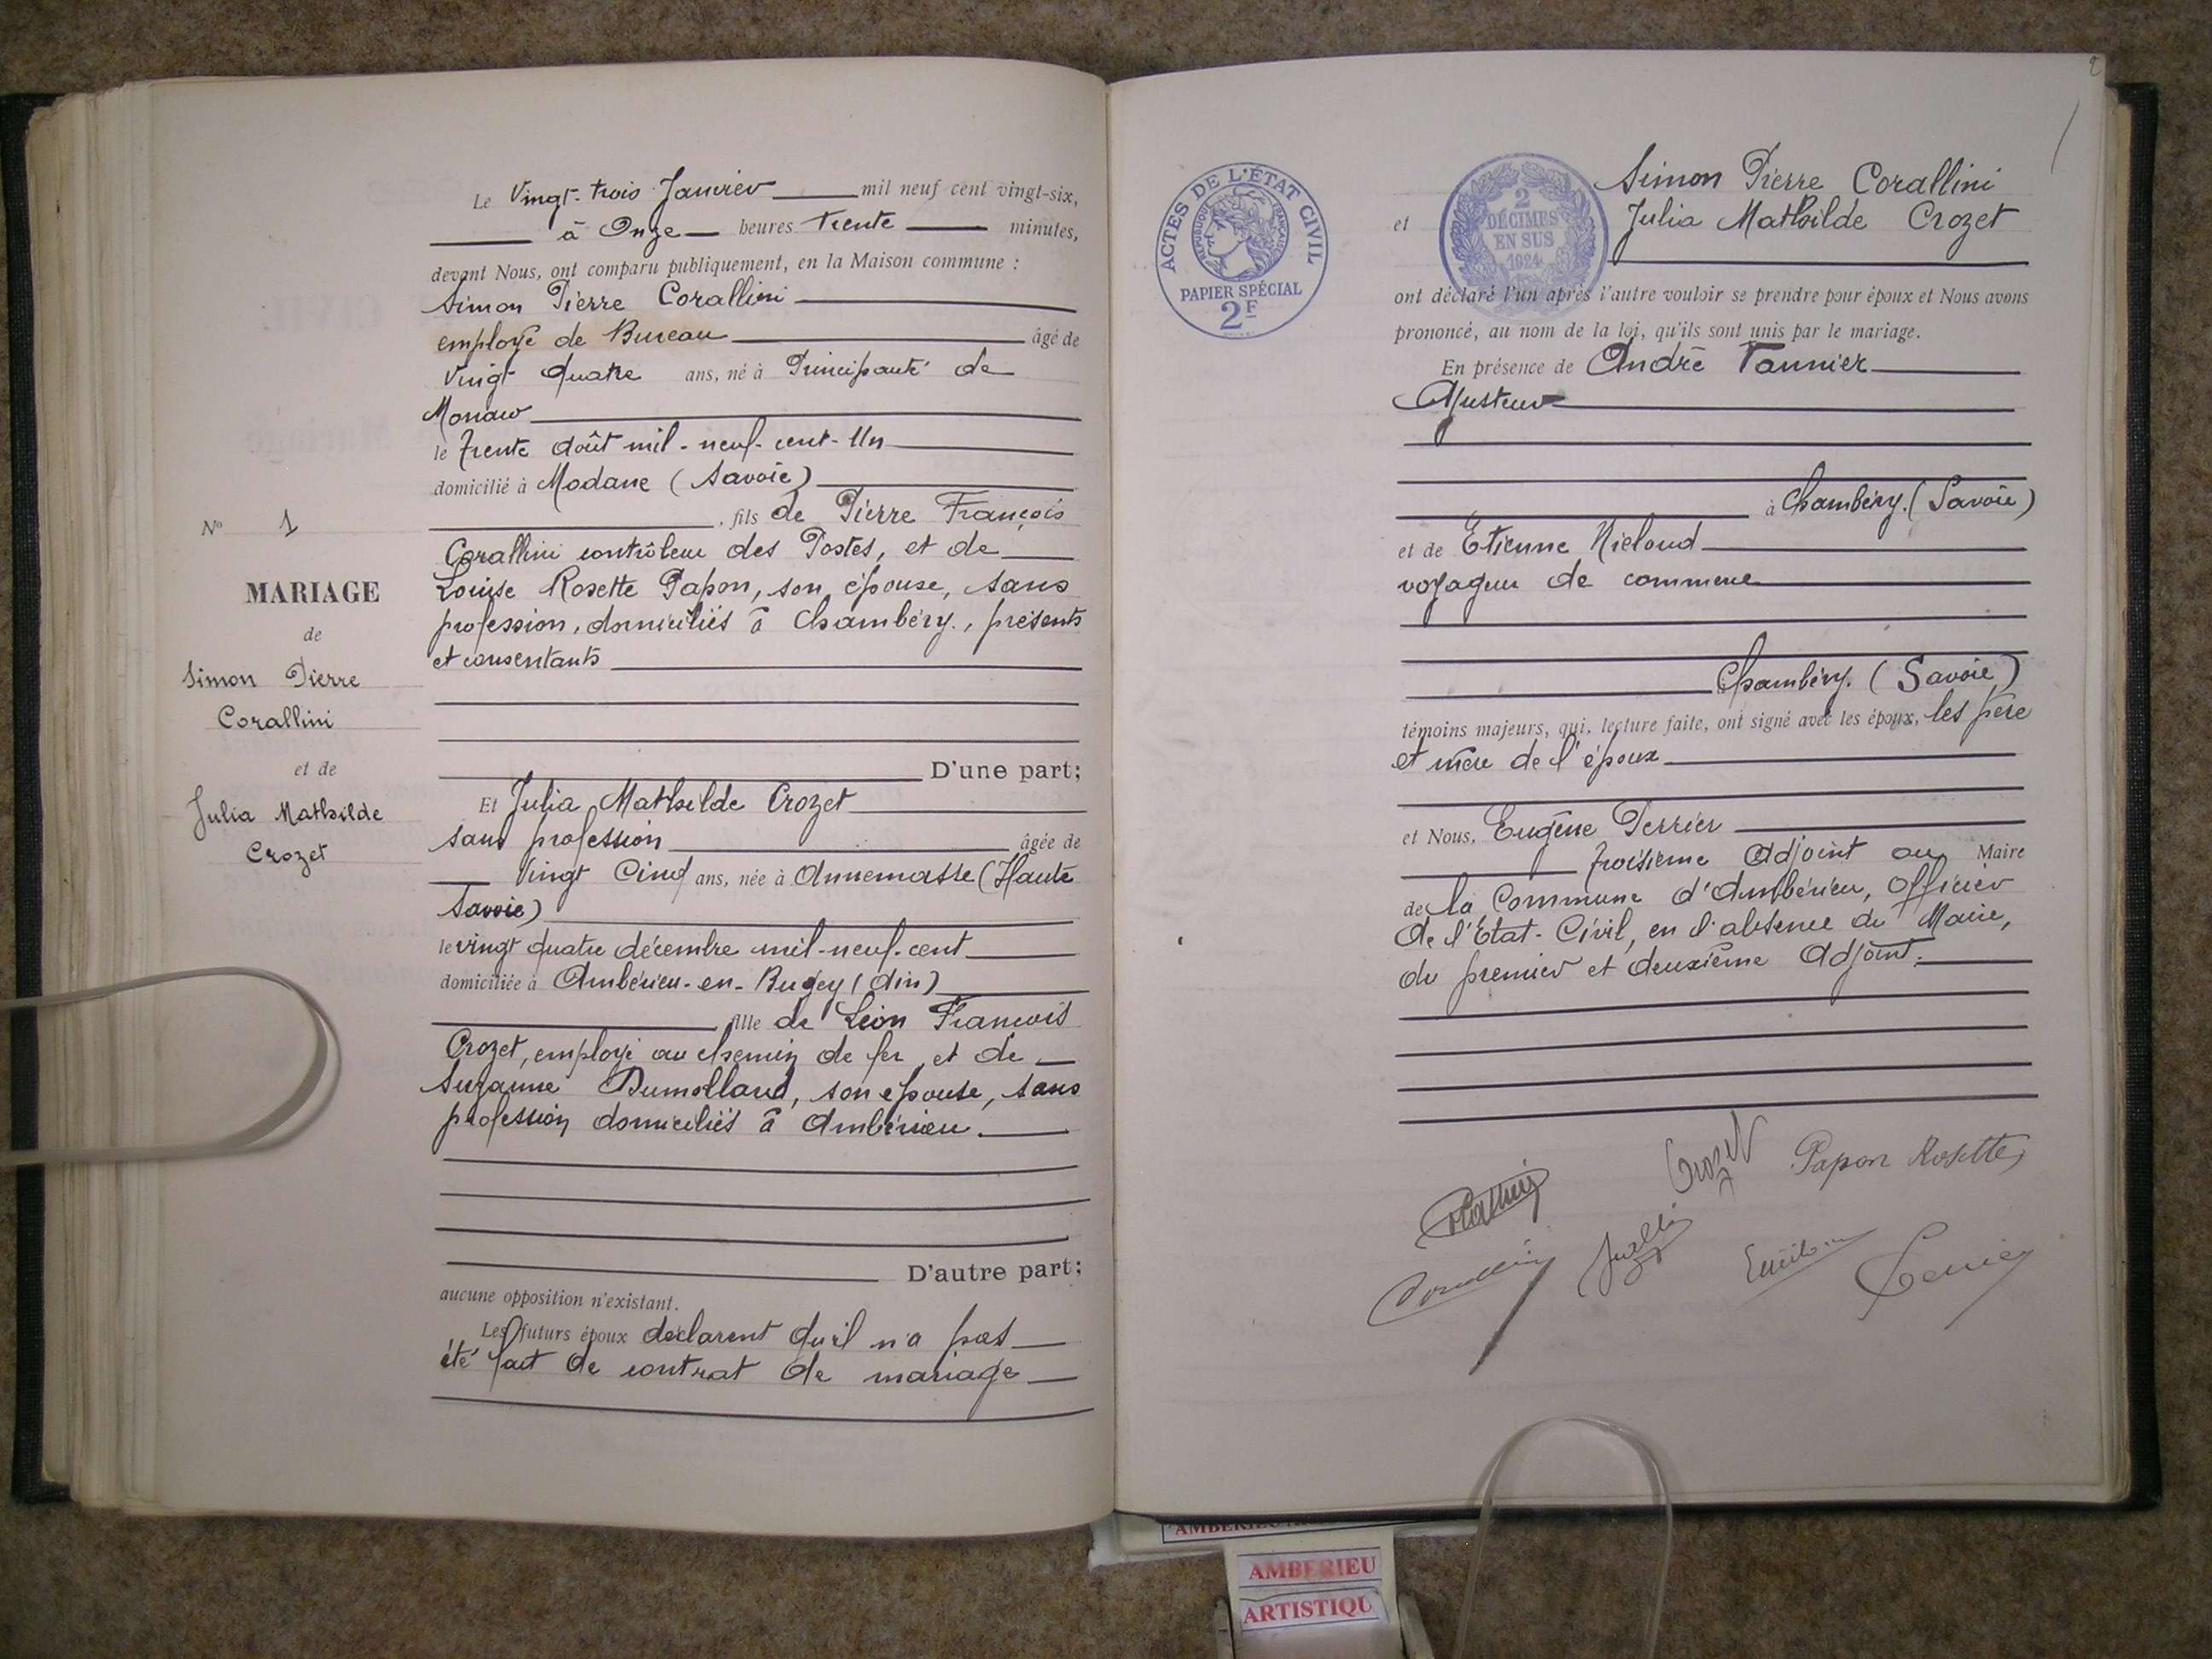 Le Vingt-trois Janvier mil neuf cent vingt-six,
à Onze heures trente minutes,
devant Nous, ont comparu publiquement, en la Maison commune :
Simon Pierre Corallini
employé de Bureau âgé de
Vingt quatre ans, né à Principauté de
Monaco
le trente août mil-neuf-cent-Un
domicilié à Modane (Savoie)
, fils de Pierre François
Corallini contrôleur des Postes, et de
Louise Rosette Papon, son épouse, sans
profession, domiciliés à Chambéry, présents
et consentants
D'une part;
Et Julia Mathilde Crozet
sans profession âgée de
Vingt Cinq ans, née à Annemasse (Haute
Savoie)
le vingt quatre décembre mil-neuf-cent
domiciliée à Ambérieu-en-Bugey (Ain)
fille de Léon François
Crozet, employé au chemin de fer, et de
Suzanne Dumollard, son épouse, sans
profession domiciliés à Ambérieu.
D'autre part;
aucune opposition n'existant.
Les futurs époux déclarent qu'il n'a pas
été fait de contrat de mariage
N° 1
MARIAGE
de
Simon Pierre
Corallini
et de
Julia Mathilde
Crozet
2
ACTES DE L'ÉTAT CIVIL
RÉPUBLIQUE FRANÇAISE
PAPIER SPÉCIAL
2F
2
DÉCIMES
EN SUS
1924
Simon Pierre Corallini
et Julia Mathilde Crozet
ont déclaré l'un après l'autre vouloir se prendre pour époux et Nous avons
prononcé, au nom de la loi, qu'ils sont unis par le mariage.
En présence de André
Ajusteur
à Chambéry. (Savoie)
et de Etienne
voyageur de commerce
Chambéry. (Savoie)
témoins majeurs, qui, lecture faite, ont signé avec les époux, les père
et mère de l'époux
et Nous, Eugène Perrier
troisième Adjoint au Maire
de la Commune d'Ambérieu, Officier
de l'Etat-Civil, en l'absence du Maire,
du premier et deuxième Adjoint.
Crozet
Papon Rosette
AMBERIEU
ARTISTIQU